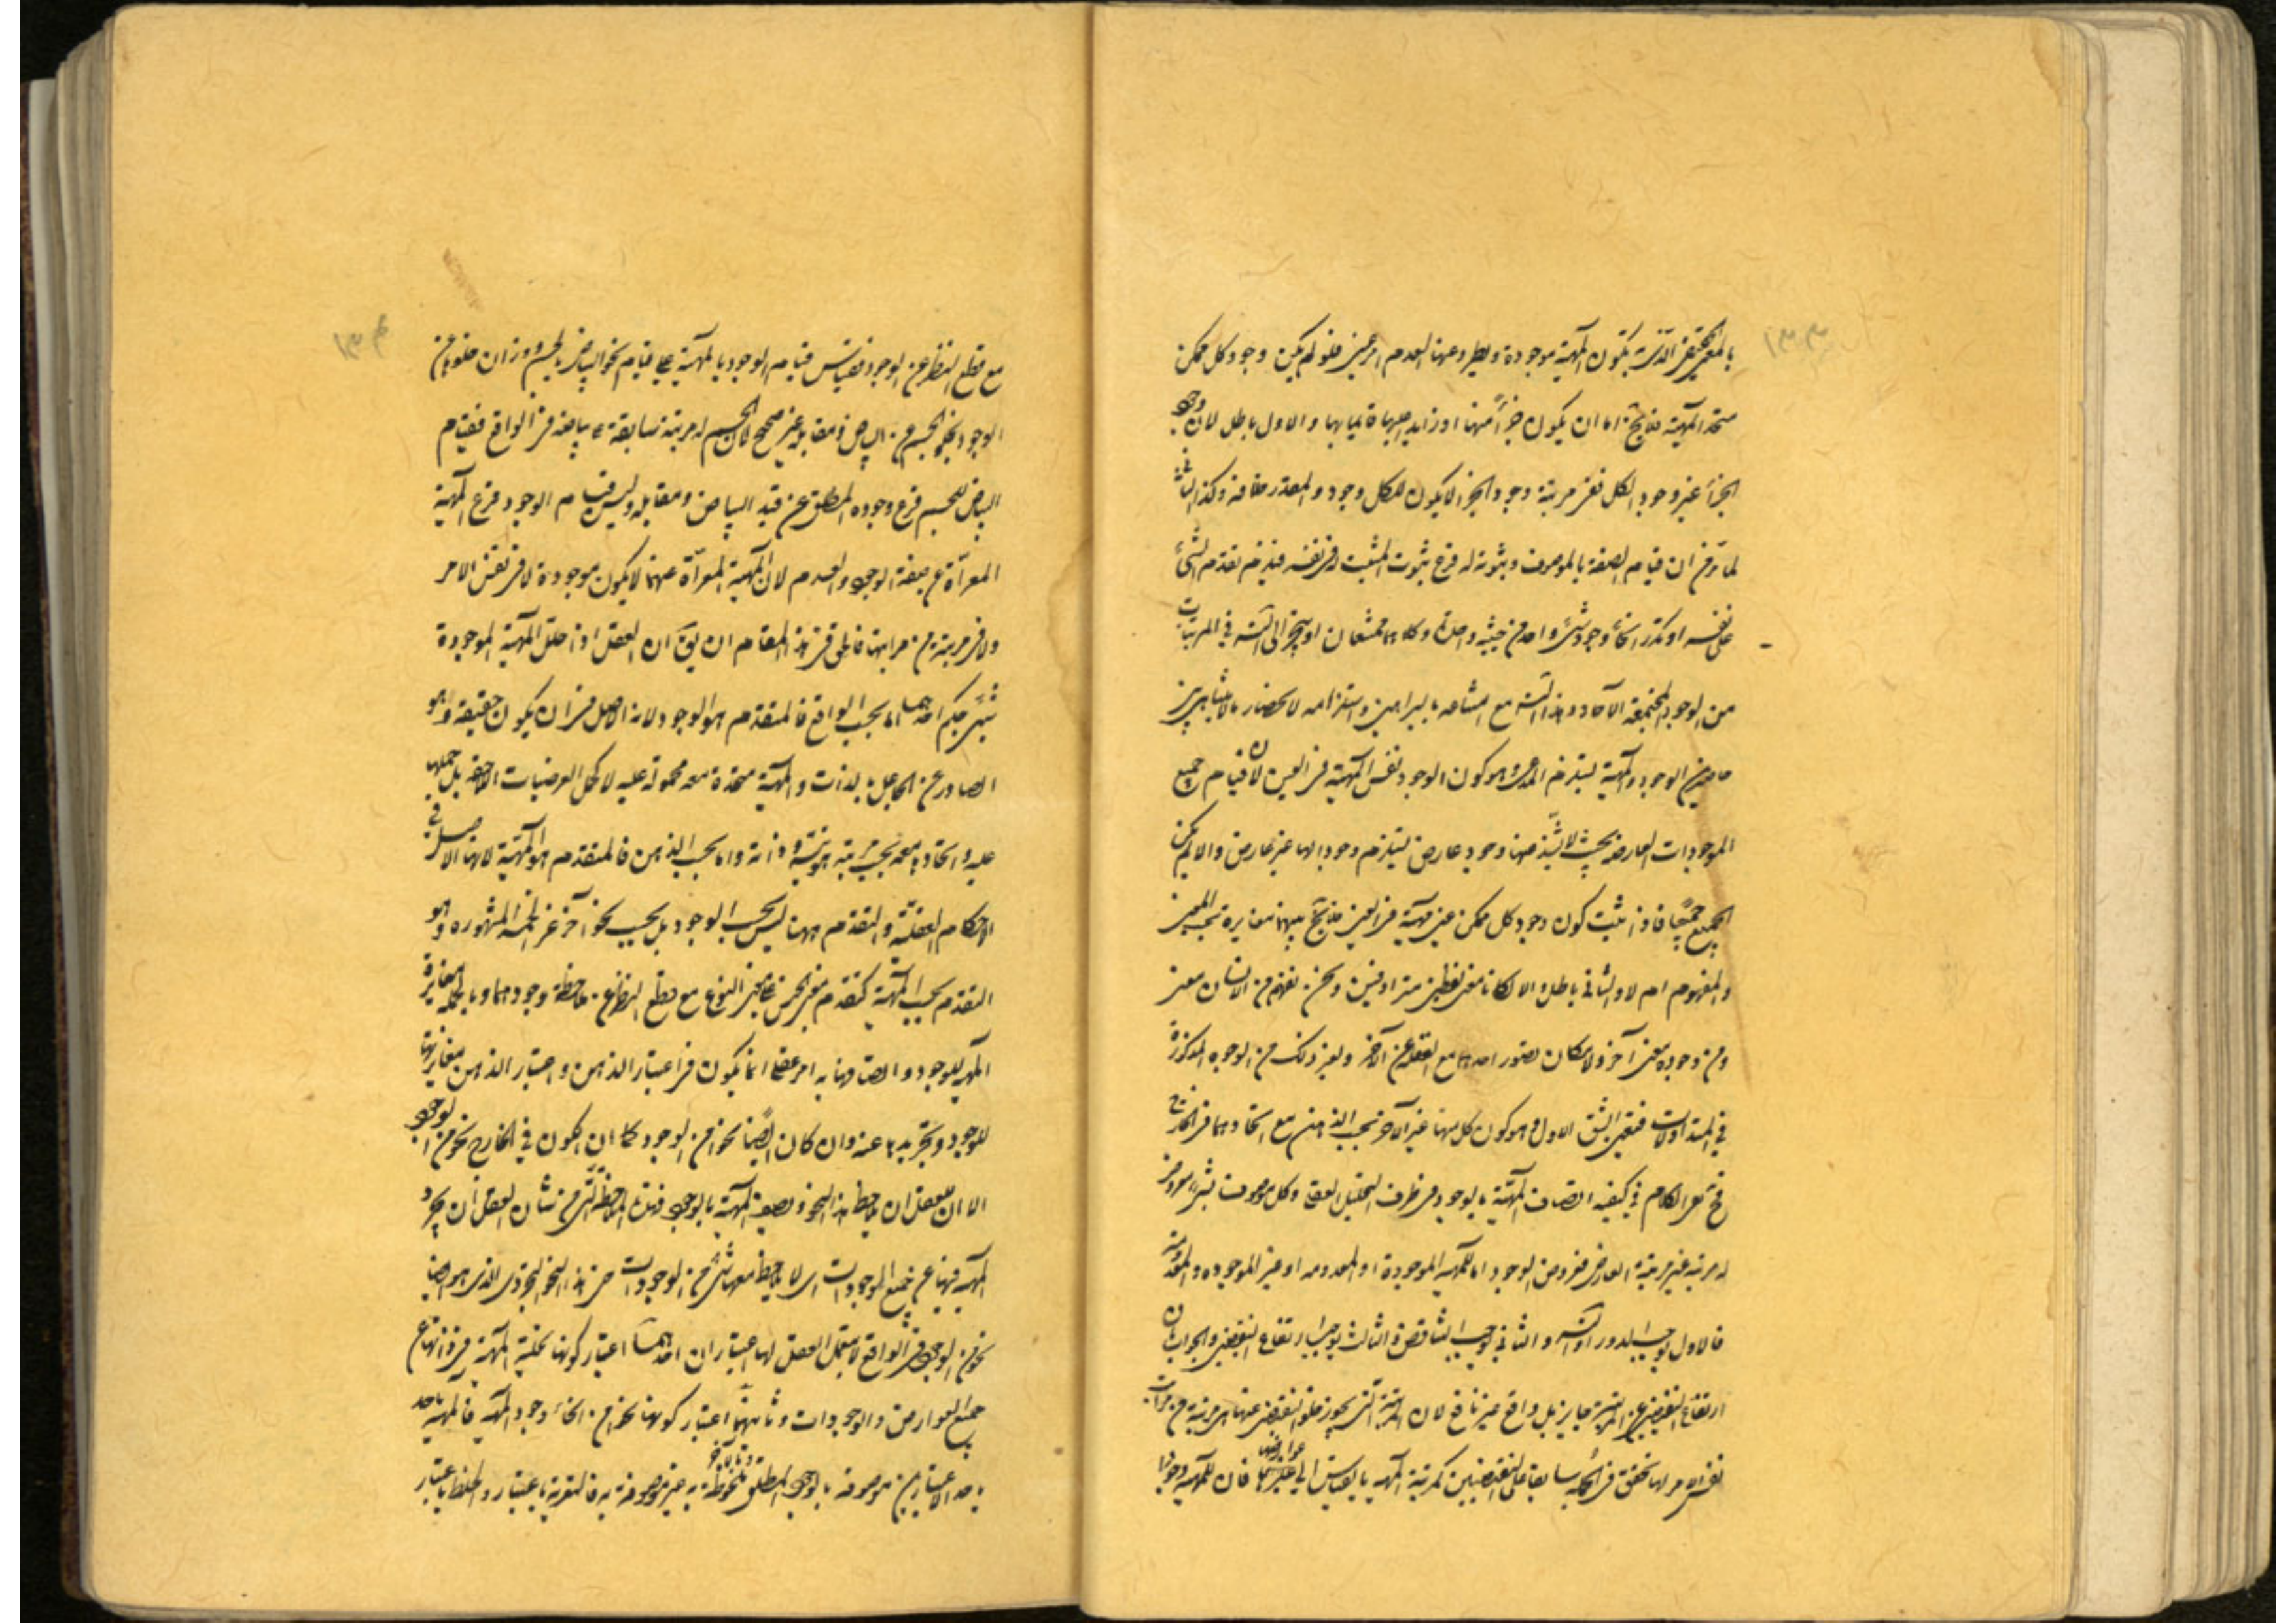 بالمعنى الحقيقى الذى به تكون المهية موجودة ويطرد عنها العدم امر عينى فلو لم يكن وجود كل ممكن
متحد المهية فلا يخ اما ان يكون جزأ منها او زايد عليها قايما بها والاول باطل لان وجود
الجزأ غير وجود الكل فعى مرتبة وجود الجزأ لا يكون للكل وجود والمقدر خلافه وكذا الثانى
لما تر من ان قيام الصفة بالموصوف وثبوته له فرع ثبوت المثبت له فى نفسه فيلزم تقدم الشئ
على نفسه او تكرر انحاء وجود شئ واحد من حيثية واحدة وكلاهما ممتنعان او ينجر الى التسه فى المرتبات
من الوجود المجتمعة الآحاد وهذا التسه مع امتناعه بالبراهين واستلزامه لانحصار مالا يتناهى بين
حاصرين الوجود والمهية يستلزم المدعى وهو كون الوجود نفس المهية فى العين لان قيام جميع
الموجودات العارضة بحيث لا يشذ منها وجود عارض يستلزم وجودا لها غير عارض والا لم يكن
الجميع جميعا فاذا ثبت كون وجود كل ممكن عين مهيته فى العين فلا يخ بينهما مغايرة بحسب المعنى
والمفهوم ام لا والثانى باطل والا لكانا معنى لفظين مترادفين ونحن نفهم من الانسان معنى
ومن وجوده معنى آخر ولامكان تصور احدهما مع الغفلة عن الآخر ولغير ذلك من الوجوه المذكورة
فى المتداولات فتعين الشق الاول وهو كون كل منهما غير الآخر بحسب الذهن مع اتحادهما فى الخارج
فح بقى الكلام فى كيفية اتصاف المهية بالوجود فى ظرف التحليل العقلى وكل موصوف بشئ او معروض
له مرتبة غير مرتبة العارض فعروض الوجود اما للمهية الموجودة او المعدومة او غير الموجودة والمعدومة
فالاول يوجب الدور او التسه والثانى يوجب التناقض والثالث يوجب ارتفاع النقيضين والجواب بان
ارتفاع النقيضين عن المرتبة جايز بل واقع غير نافع لان المرتبة التى يجوز خلو النقيضين عنها هى مرتبة من مراتب
نفس الامر لها تحقق فى الجملة سابقا على النقيضين كمرتبة المهية بالقياس الى عوارضها فان للمهية وجودا
مع قطع النظر عن الوجود فقياس قيام الوجود بالمهية على قيام نحو البياض بالجسم ووزان خلوها عن
الوجود بخلو الجسم عن البياض ومقابله غير صحيح لان الجسم له مرتبة سابقة على بياضه فى الواقع فقيام
البياض للجسم فرع وجوده المطلق عن قيد البياض ومقابله وليس قيام الوجود فرع المهية
المعراة عن صفة الوجود والعدم لان المهية المعراة عنهما لا يكون موجودة لا فى نفس الامر
ولا فى مرتبة من مراتبها فالحق فى هذا المقام ان يق ان العقل اذا حلل المهية الموجودة
شيئين حكم احدهما اما بحسب الواقع فالمتقدم هو الوجود لانه الاصل فى ان يكون حقيقة وهو
الصادر عن الجاعل بالذات والمهية متحدة معه محمولة عليه لا كحمل العرضيات اللاحقة بل حملها
عليه واتحادها معه بحسب مرتبة هويته وذاته واما بحسب الذهن فالمتقدم هو المهية لانها الاصل فى
الاحكام العقلية والتقدم ههنا ليس بحسب الوجود بل بحسب نحو آخر غير الخمسة المشهورة وهو
التقدم بحسب المهية كتقدم معنى الجنس على معنى النوع مع قطع النظر عن ملاحظة وجودهما وبالجملة مغايرة
المهية للوجود واتصافها به امر عقلى انما يكون فى اعتبار الذهن واعتبار الذهن مغايرتها
للوجود وتجريدها عنه وان كان ايضا نحوا من الوجود كما ان الكون فى الخارج نحو من الوجود
الا ان للعقل ان يلاحظ هذا النحو ويصف المهية بالوجود فهذه الملاحظة التى من شان العقل ان يجرد
المهية فيها عن جميع الموجودات اى لا يلاحظ معها شئ من الوجودات حتى هذا النحو التجردى الذى هو ايضا
نحو من الوجود فى الواقع لا بتعمل العقل لها اعتباران احدهما اعتبار كونها تخلية المهية فى ذاتها عن
جميع العوارض والوجودات وثانيهما اعتبار كونها نحوا من انحاء وجود المهية فالمهية باحد
باحد الاعتبارين موصوفة بالوجود المطلق وبالآخر مخلوطة به غير موصوفة به فالتعرية باعتبار والخلط باعتبار